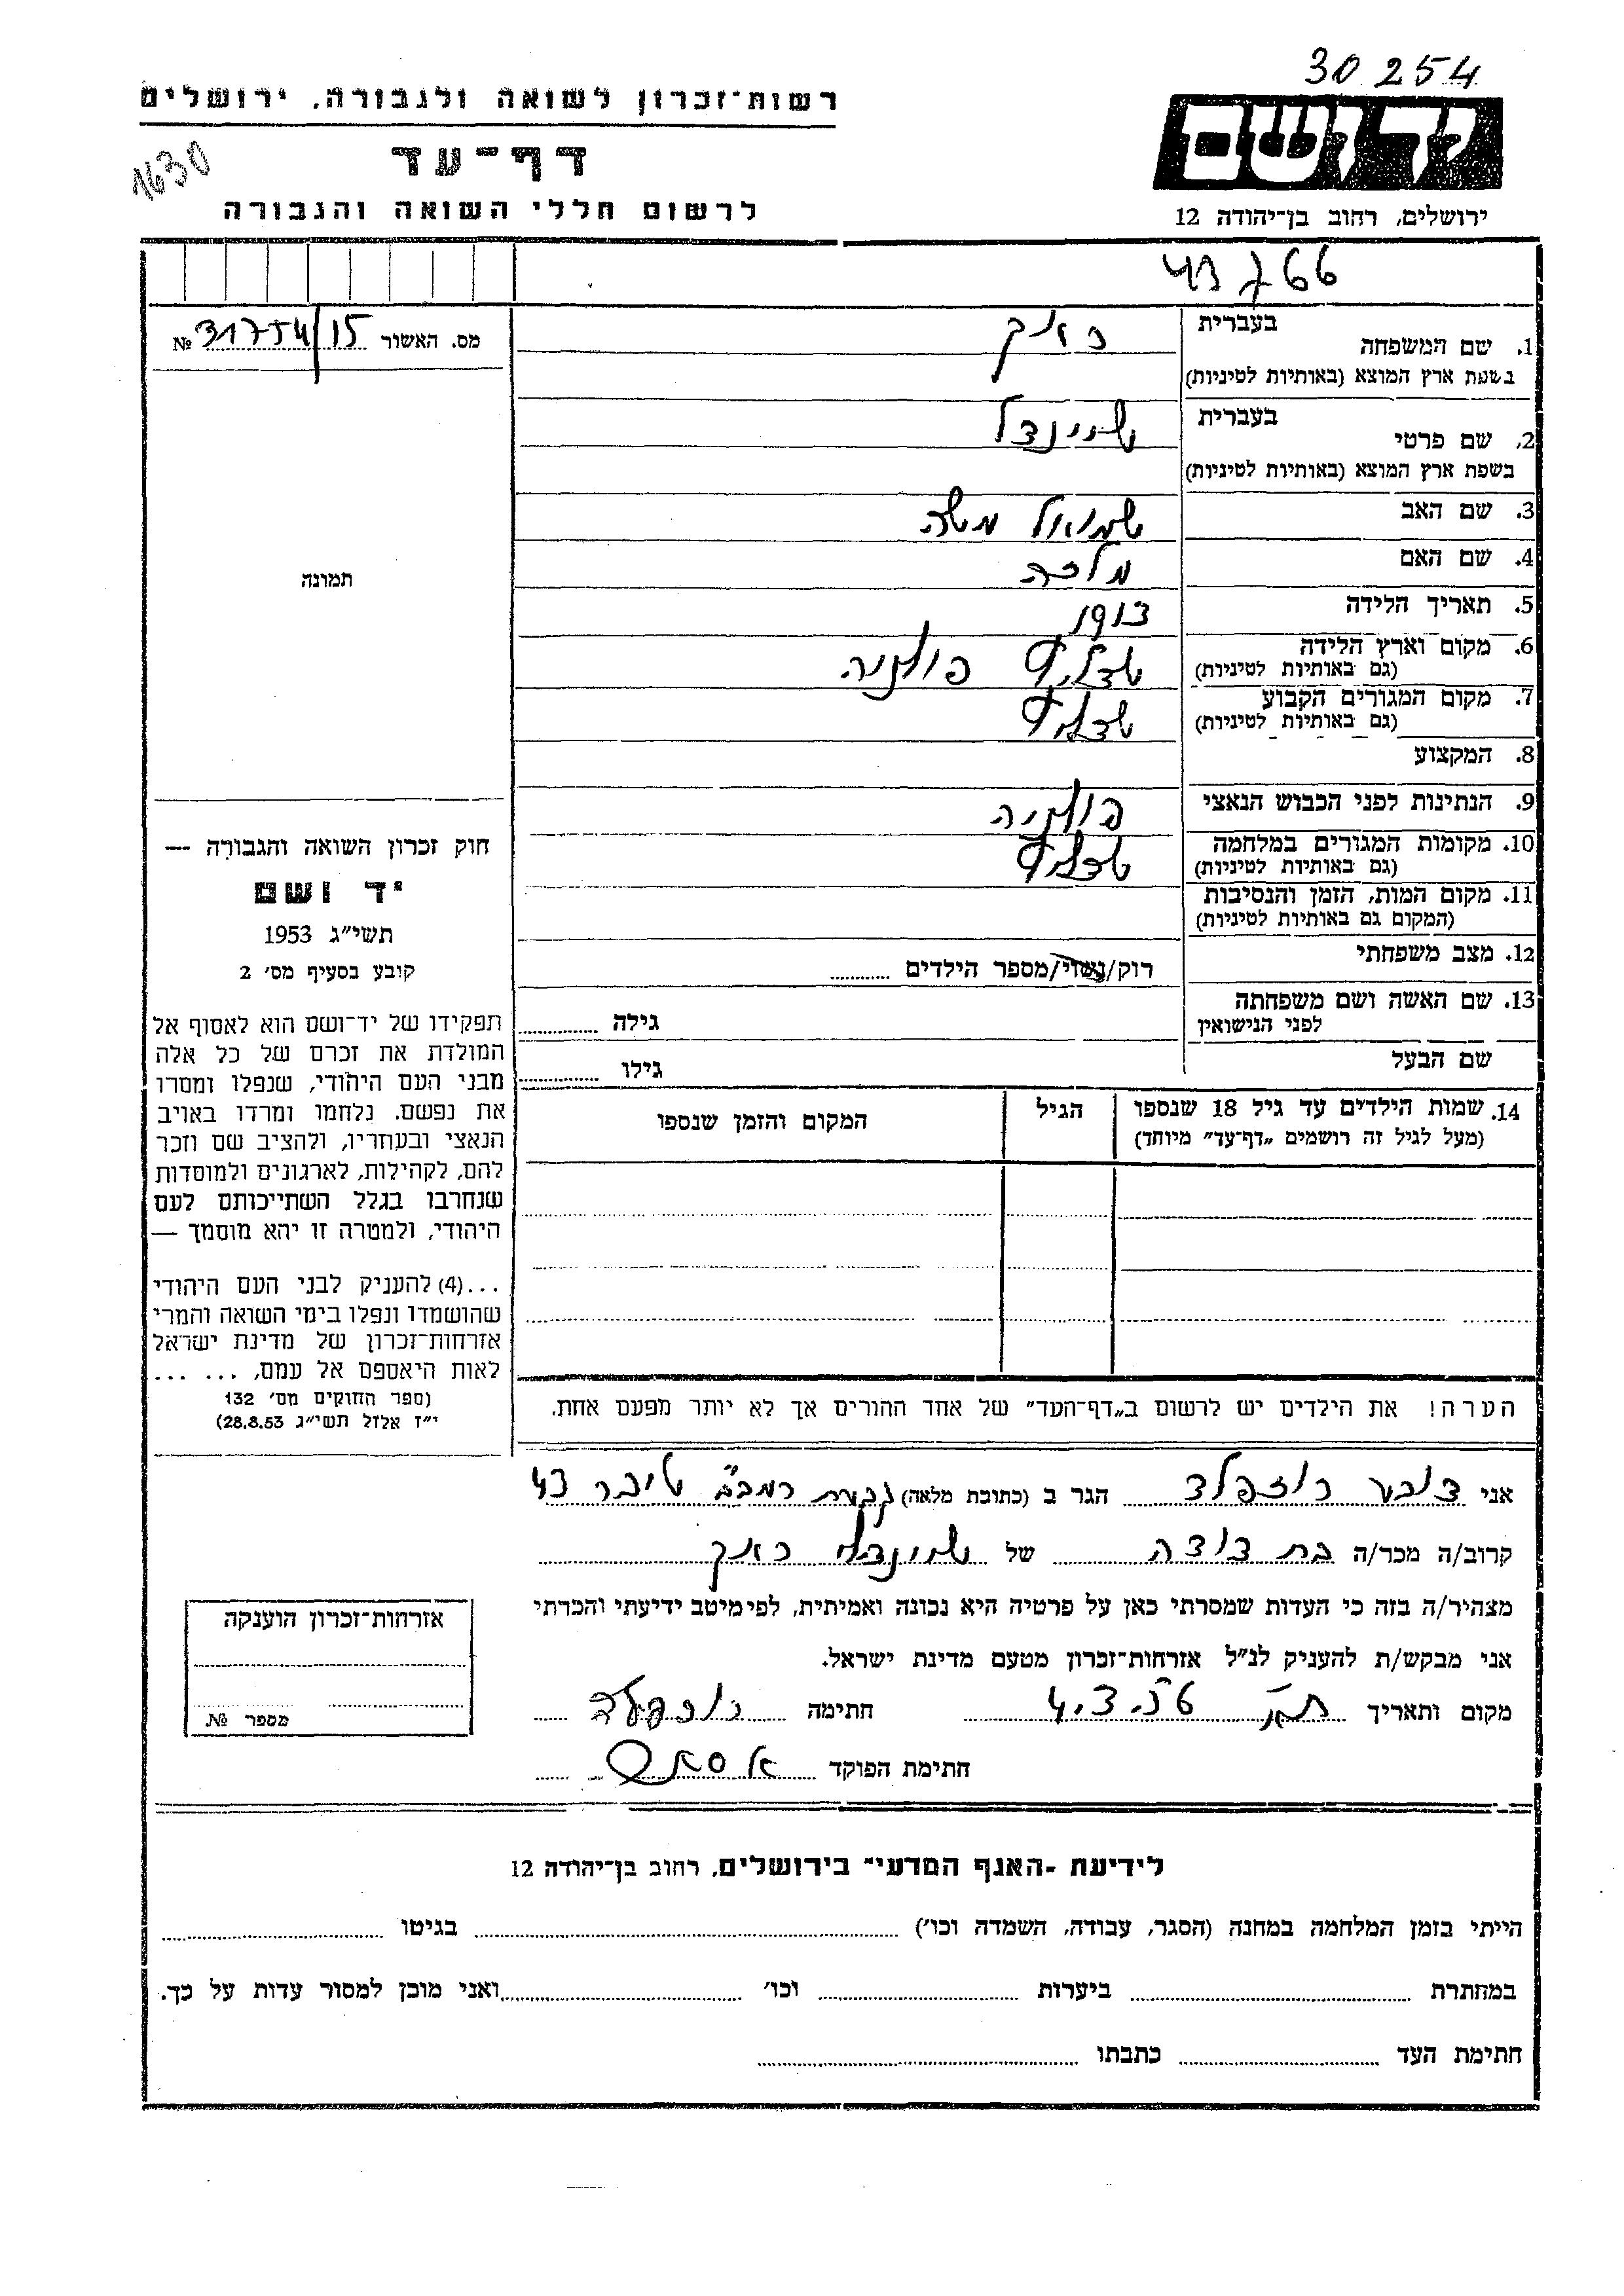 30254
רשות־זכרון לשואה ולגבורה, ירושלים
ידושם
דף־עד
1630
לרשום חללי השואה והגבורה
ירושלים, רחוב בן־יהודה 12
43766
מס. האשור № 31754/15
בעברית
1. שם המשפחה
בשפת ארץ המוצא (באותיות לטיניות)
בעברית
2. שם פרטי שיינדל
בשפת ארץ המוצא (באותיות לטיניות)
3. שם האב שמואל משה
4. שם האם מלכה
5. תאריך הלידה 1913
6. מקום וארץ הלידה פולניה
(גם באותיות לטיניות)
7. מקום המגורים הקבוע
(גם באותיות לטיניות)
8. המקצוע
9. הנתינות לפני הכבוש הנאצי פולניה
10. מקומות המגורים במלחמה
(גם באותיות לטיניות)
11. מקום המות, הזמן והנסיבות
(המקום גם באותיות לטיניות)
12. מצב משפחתי רוק/נשוי/מספר הילדים
13. שם האשה ושם משפחתה
לפני הנישואין גילה
שם הבעל גילו
14. שמות הילדים עד גיל 18 שנספו
(מעל לגיל זה רושמים „דף־עד” מיוחד)
הגיל
המקום והזמן שנספו
הערה! את הילדים יש לרשום ב„דף־העד” של אחד ההורים אך לא יותר מפעם אחת.
תמונה
חוק זכרון השואה והגבורה —
יד ושם
תשי״ג 1953
קובע בסעיף מס׳ 2
תפקידו של יד־ושם הוא לאסוף אל
המולדת את זכרם של כל אלה
מבני העם היהודי, שנפלו ומסרו
את נפשם, נלחמו ומרדו באויב
הנאצי ובעוזריו, ולהציב שם וזכר
להם, לקהילות, לארגונים ולמוסדות
שנחרבו בגלל השתייכותם לעם
היהודי, ולמטרה זו יהא מוסמך —
...(4) להעניק לבני העם היהודי
שהושמדו ונפלו בימי השואה והמרי
אזרחות־זכרון של מדינת ישראל
לאות היאספם אל עמם, ... ...
(ספר החוקים מס׳ 132
י״ז אלול תשי״ג 28.8.53)
אני רוזנפלד הגר ב (כתובת מלאה) גבעת רמב״ם 43
קרוב/ה מכר/ה בת דודה של שיינדל
מצהיר/ה בזה כי העדות שמסרתי כאן על פרטיה היא נכונה ואמיתית, לפי מיטב ידיעתי והכרתי
אני מבקש/ת להעניק לנ״ל אזרחות־זכרון מטעם מדינת ישראל.
מקום ותאריך 4.3. חתימה רוזנפלד
חתימת הפוקד
אזרחות־זכרון הוענקה
מספר №
לידיעת -האגף המדעי־ בירושלים, רחוב בן־יהודה 12
הייתי בזמן המלחמה במחנה (הסגר, עבודה, השמדה וכו׳) בגיטו
במחתרת ביערות וכו׳ ואני מוכן למסור עדות על כך.
חתימת העד כתבתו